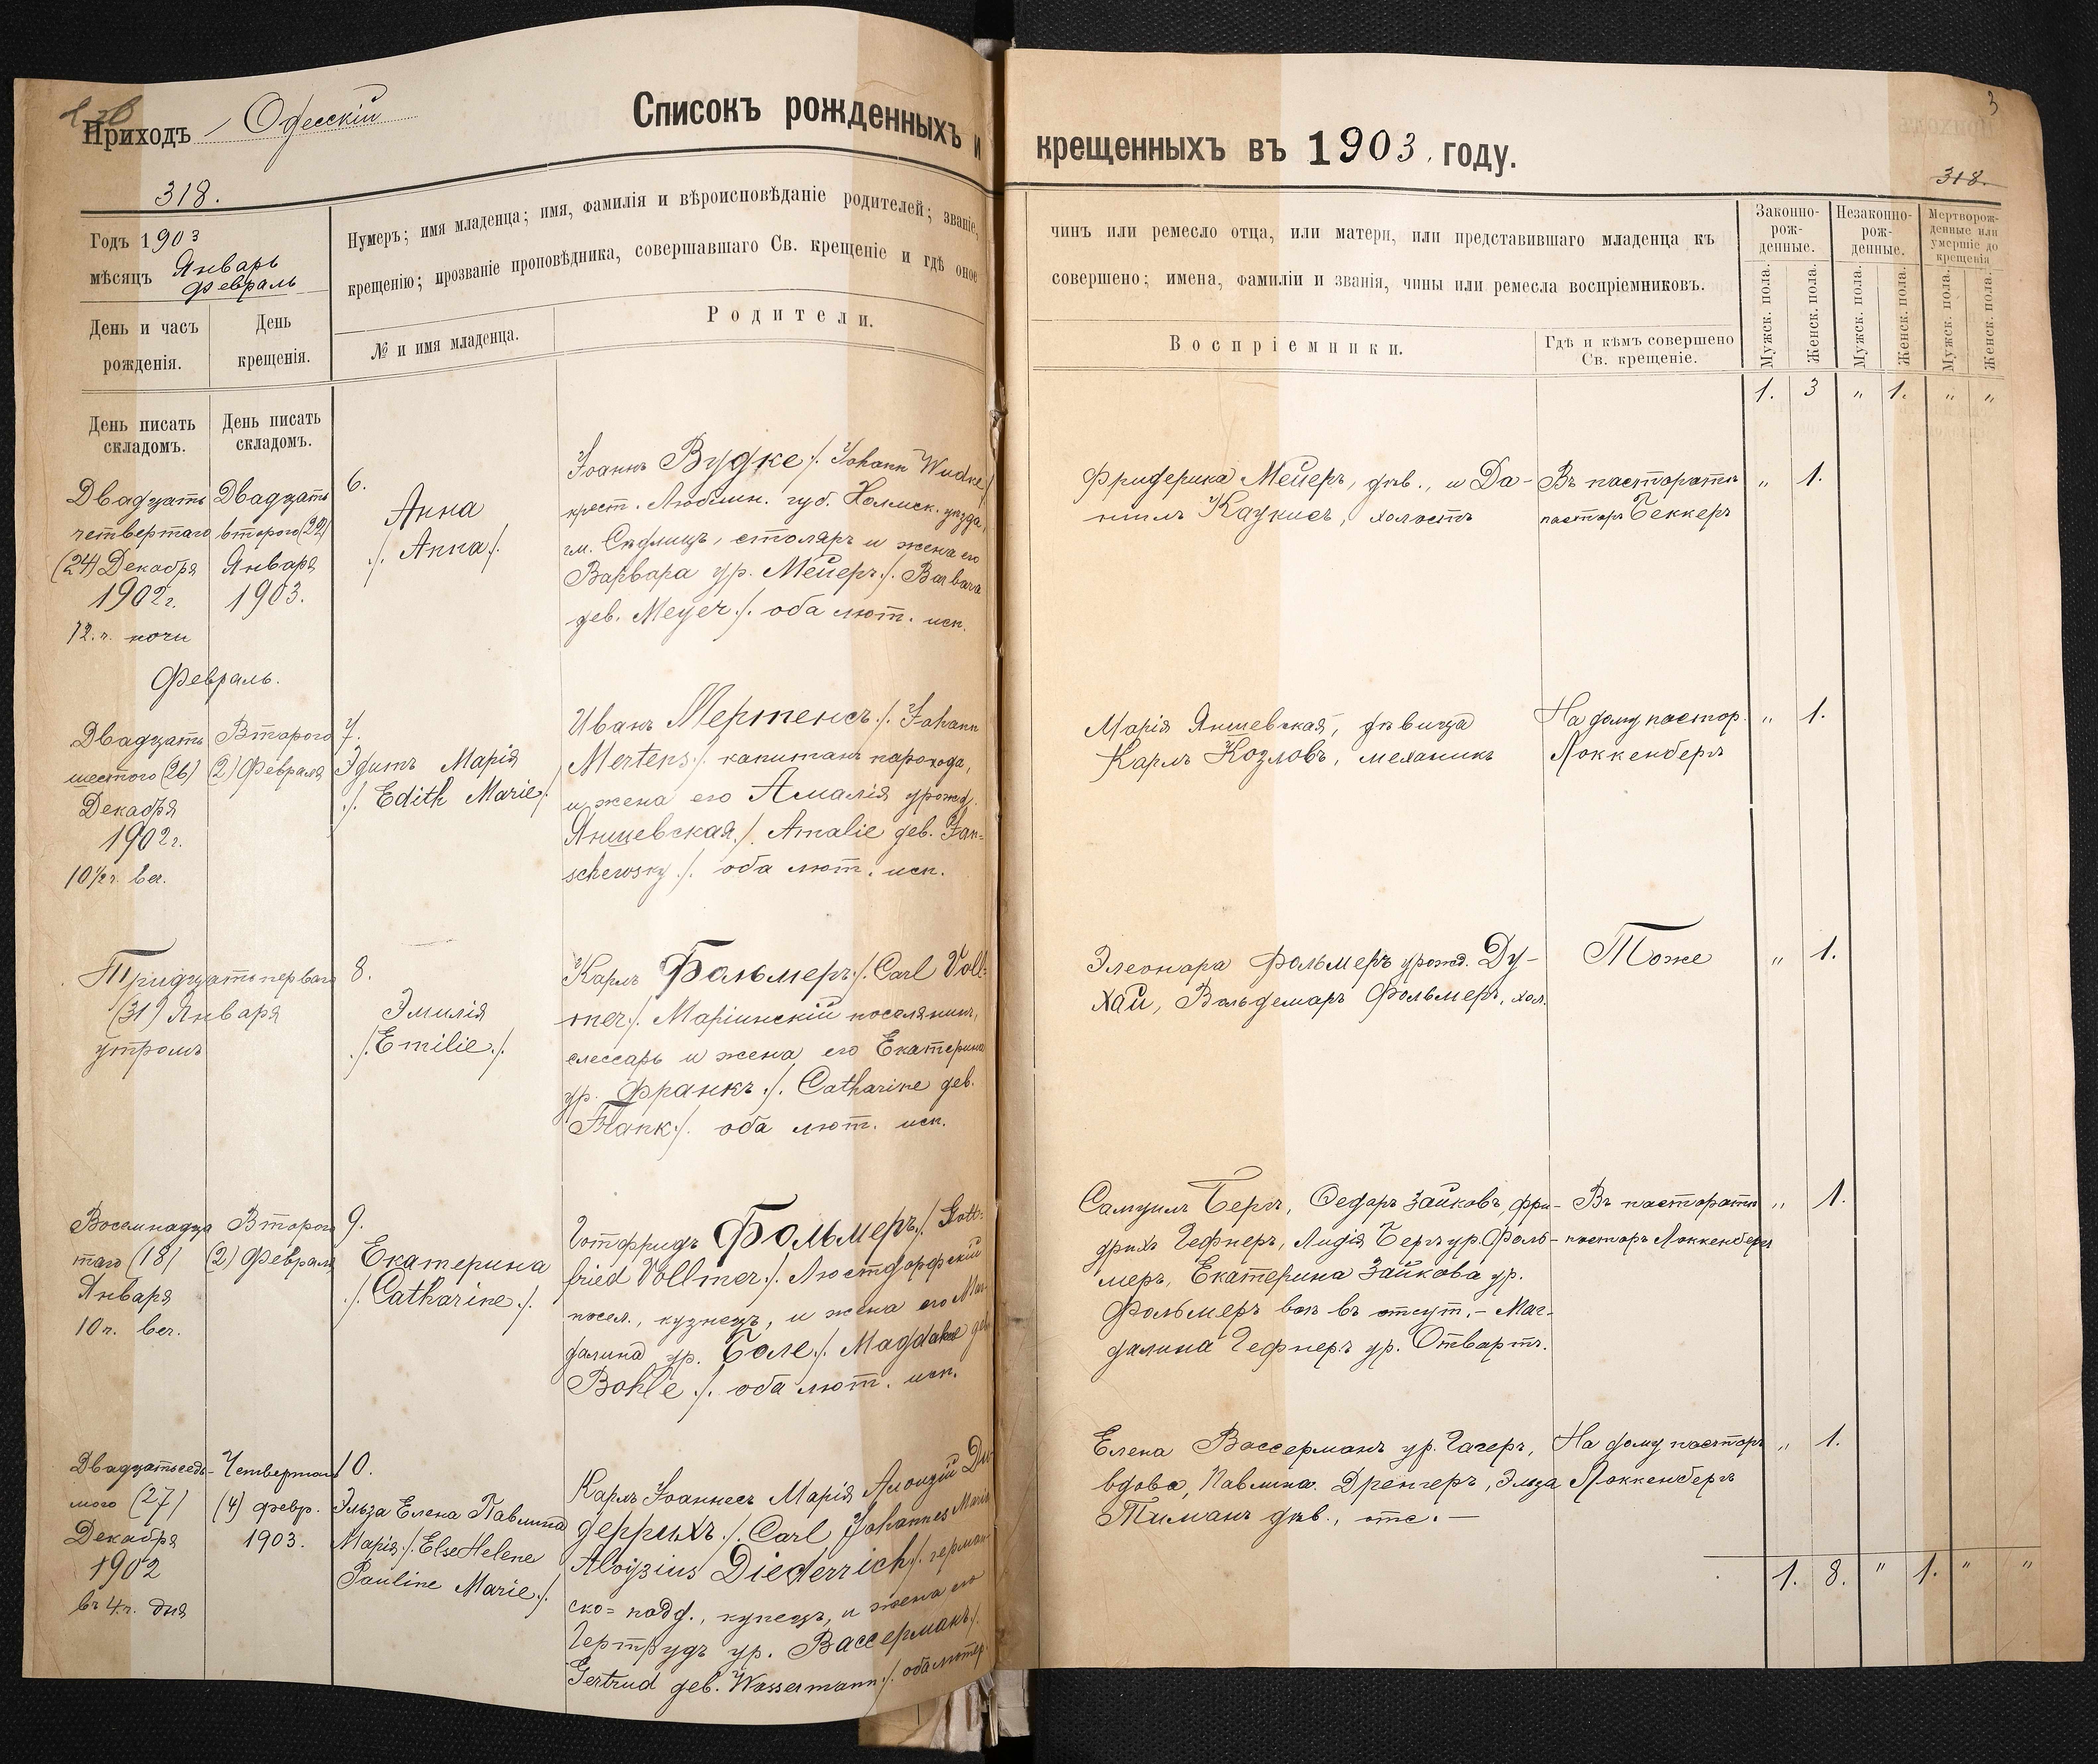 Приходъ Одесскій
Списокъ рожденныхъ и
крещенныхъ въ 1903. году.
3
318.
318.
Годъ 1903
мѣсяцъ Январь
Февраль
Нумеръ; имя младенца; имя, фамилія и вѣроисповѣданіе родителей; званіе,
крещенію; прозваніе проповѣдника, совершавшаго Св. крещеніе и гдѣ оное
чинъ или ремесло отца, или матери, или представившаго младенца къ
совершено; имена, фамиліи и званія, чины или ремесла воспріемниковъ.
День и часъ
рожденія.
День
крещенія.
№ и имя младенца.
Родители.
Воспріемники.
Гдѣ и кѣмъ совершено
Св. крещеніе.
Законно-
рож-
денные.
Незаконно-
рож-
денные.
Мертворож-
денные или
умершіе до
крещенія
Мужск. пола.
Женск. пола.
Мужск. пола.
Женск. пола.
Мужск. пола.
Женск. пола.
1. 3 " 1. " "
День писать
складомъ.
День писать
складомъ.
Двадцать
четвертаго
(24) Декабря
1902 г.
12. ч. ночи
Двадцать
второго (22)
Января
1903.
6.
Анна
./. Анна ./.
Іоаннъ Вудке ./. Johann Wudke ./
крест. Люблин. губ. Холмск. уѣзда,
гм. Сѣдлищъ, столяръ и жена его
Варвара ур. Мейеръ ./. Barbara
geb. Meyer ./. оба лют. исп.
Фридерика Мейеръ, дѣв., и Да-
ніилъ Каукисъ, холостъ
Въ пасторатѣ
пасторъ Беккеръ
" 1.
Февраль.
Двадцать
шестого (26)
Декабря
1902 г.
10½ ч. веч.
Второго
(2) Февраля
7.
Эдитъ Марія
./. Edith Marie ./
Иванъ Мертенсъ ./. Johann
Mertens ./. капитанъ парохода,
и жена его Амалія урожд.
Яншевская ./. Amalie geb. Jan-
schewsky ./. оба лют. исп.
Марія Яншевская, дѣвица
Карлъ Козловъ, механикъ
На дому пастор.
Локкенбергъ
" 1.
Тридцатьперваго
(31) Января
утромъ
8.
Эмилія
./. Emilie ./.
Карлъ Фольмеръ ./. Carl Voll-
mer ./. Маріинскій поселянинъ,
слесарь и жена его Екатерина
ур. Франкъ ./. Catharine geb.
Frank ./. оба лют. исп.
Элеонора Фольмеръ урожд. Ду-
хай, Вольдемаръ Фольмеръ, хол.
Тоже
" 1.
Восемнадца
таго (18)
Января
10 ч. веч.
Второго
(2) Февраля
9.
Екатерина
./. Catharine ./.
Готфридъ Фольмеръ ./. Gott-
fried Vollmer ./. Люстдорфскій
посел., кузнецъ, и жена его Маг-
далина ур. Боле ./. Magdalene geb.
Bohle ./. оба лют. исп.
Самуилъ Бергъ, Федоръ Зайковъ, Фри-
дрихъ Гефнеръ, Лидія Бергъ ур. Фоль-
меръ, Екатерина Зайкова ур.
Фольмеръ въ отсут. - Маг-
далина Гефнеръ ур. Отвартъ.
Въ пасторатѣ
пасторъ Локкенбергъ
" 1.
Двадцатьседь-
мого (27)
Декабря
1902
въ 4 ч. дня
Четвертаго
(4) февр.
1903.
10.
Эльза Елена Павлина
Марія ./. Else Helene
Pauline Marie ./.
Карлъ Іоаннесъ Марія Алоизій Ди-
деррихъ ./. Carl Johannes Maria
Aloysius Diederrich ./. герман-
ско-подд., купецъ, и жена его
Гертрудъ ур. Вассерманъ ./.
Gertrud geb. Wassermann ./. оба лютер.
Елена Вассерманъ ур. Гагеръ,
вдова, Павлина Дрегеръ, Эльза
Тиманъ дѣв., отс. -
На дому пасторъ
Локкенбергъ
" 1.
1. 8. " 1. " "